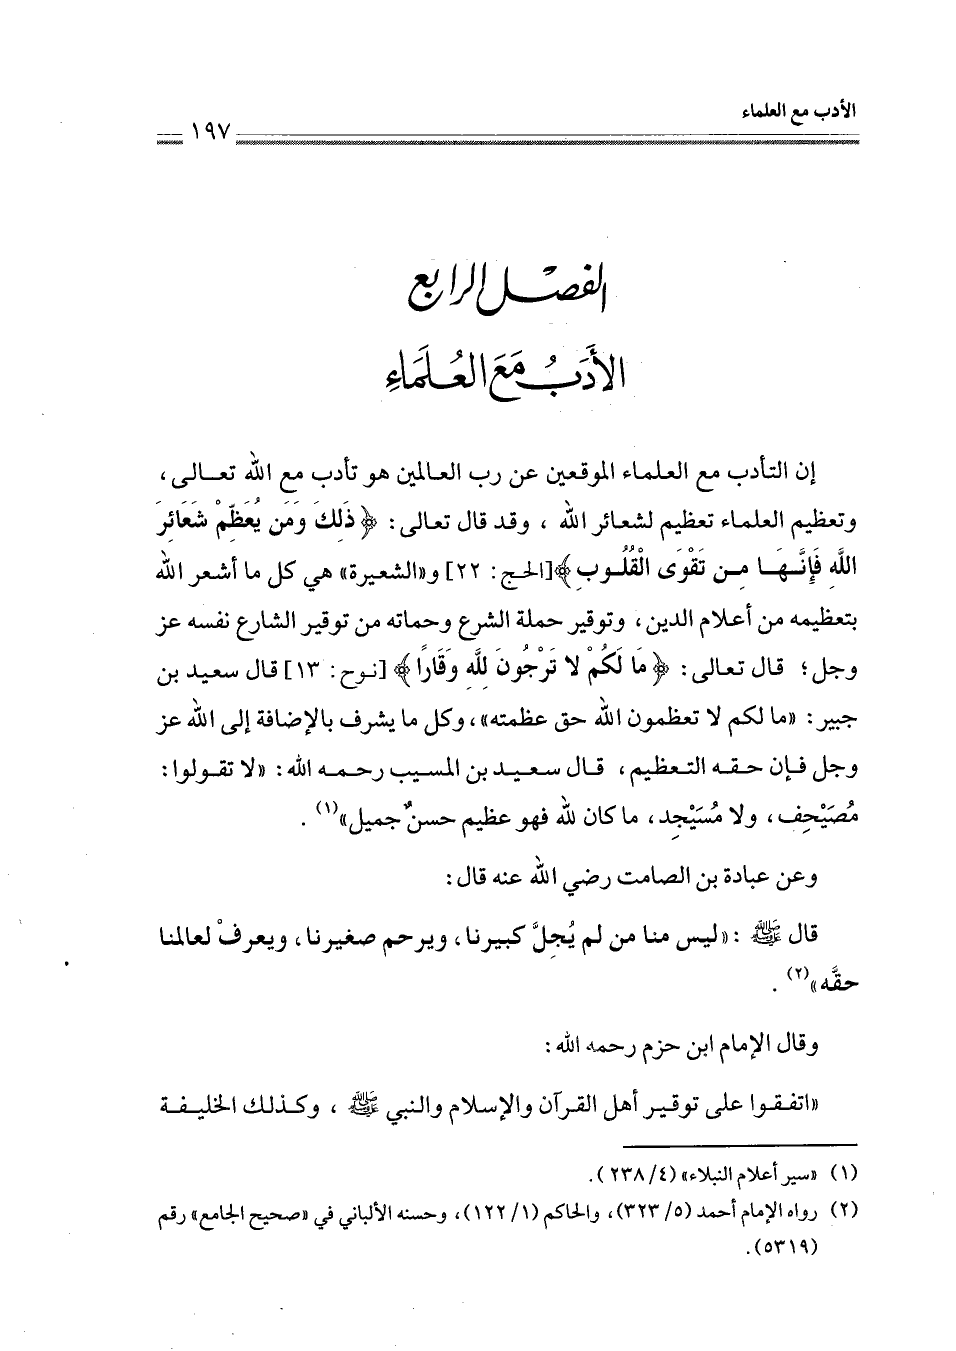 الأدب مع العلماء
١٩٧
الفصل الرابع
الأَدَبُ مَعَ العُلَمَاءِ
إن التأدب مع العلماء الموقعين عن رب العالمين هو تأدب مع الله تعالى،
وتعظيم العلماء تعظيم لشعائر الله ، وقد قال تعالى: ﴿ ذَلِكَ وَمَن يُعَظِّمْ شَعَائِرَ
اللَّهِ فَإِنَّهَا مِن تَقْوَى الْقُلُوبِ﴾[الحج: ٢٢] و«الشعيرة» هي كل ما أشعر الله
بتعظيمه من أعلام الدين، وتوقير حملة الشرع وحماته من توقير الشارع نفسه عز
وجل؛ قال تعالى: ﴿ مَا لَكُمْ لا تَرْجُونَ لِلَّهِ وَقَارًا﴾ [نوح: ١٣] قال سعيد بن
جبير: «ما لكم لا تعظمون الله حق عظمته»، وكل ما يشرف بالإضافة إلى الله عز
وجل فإن حقه التعظيم، قال سعيد بن المسيب رحمه الله: «لا تقولوا:
مُصَيْحِف، ولا مُسَيْجِد، ما كان لله فهو عظيم حسنٌ جميل»(١) .
وعن عبادة بن الصامت رضي الله عنه قال:
قال ﷺ : «ليس منا من لم يُجِلَّ كبيرنا، ويرحم صغيرنا، ويعرفْ لعالمنا
حقَّه»(٢) .
وقال الإمام ابن حزم رحمه الله:
«اتفقوا على توقير أهل القرآن والإسلام والنبي ﷺ ، وكذلك الخليفة
(١) «سير أعلام النبلاء» (٤/ ٢٣٨).
(٢) رواه الإمام أحمد (٥/ ٣٢٣)، والحاكم (١/ ١٢٢)، وحسنه الألباني في «صحيح الجامع» رقم
(٥٣١٩).